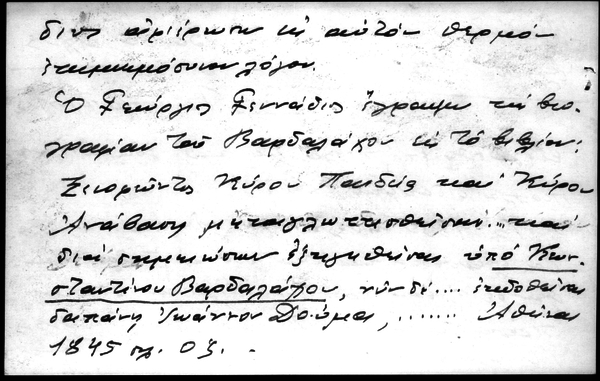 διος ἀφιέρωσεν εἰς αὐτὸν θερμὸν
ἐπιμνημόσυνον λόγον.
Ὁ Γεώργιος Γεννάδιος ἔγραψε τὴν βιο-
γραφίαν τοῦ Βαρδαλάχου εἰς τὸ βιβλίον:
Ξενοφῶντος Κύρου Παιδεία καὶ Κύρου
Ἀνάβασις μεταγλωττισθεῖσαι... καὶ
διὰ σημειώσεων ἐξηγηθεῖσαι ὑπὸ Κων-
σταντίνου Βαρδαλάχου, νῦν δὲ.... ἐκδοθεῖσαι
δαπάνῃ Ἰωάννου Δούμα, ....... Ἀθῆναι
1845 σλ. οζ. .